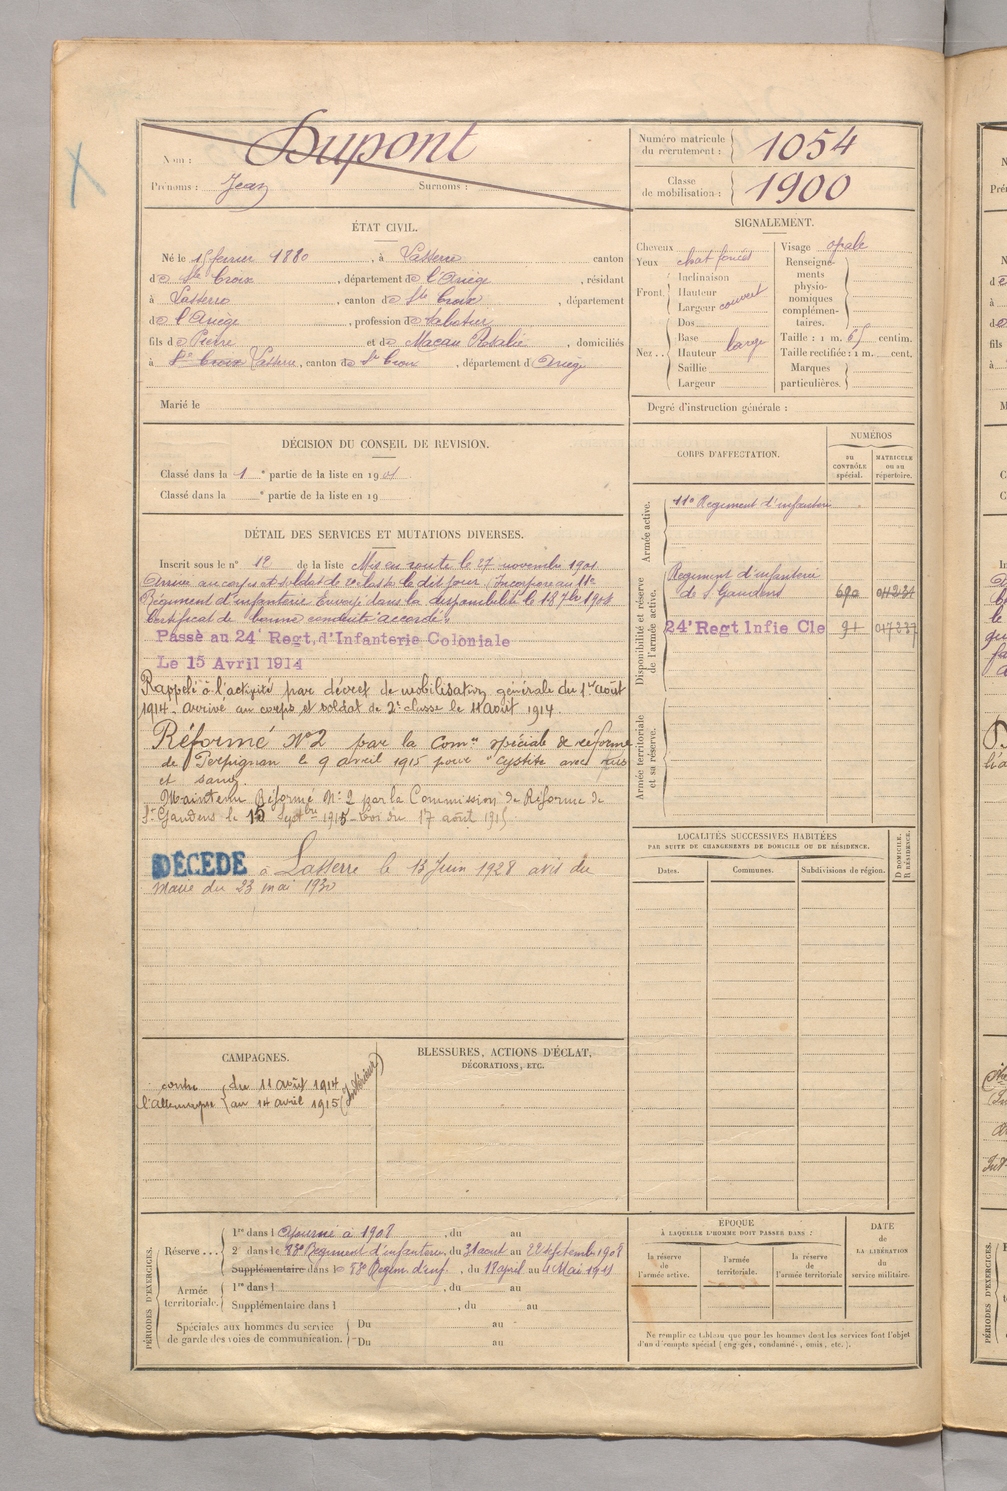 Nom : Dupont
Prénoms : Jean Surnoms :
Numéro matricule du recrutement : 1054
Classe de mobilisation : 1900
ÉTAT CIVIL.
Né le 15 février 1880, à Lasserre canton
de Ste Croix, département de l'Ariège, résidant
à Lasserre, canton de Ste Croix, département
de l'Ariège, profession de sabotier
fils de Pierre et de Macau Rosalie, domiciliés
à Ste Croix Lasserre, canton de Ste Croix, département d'Ariège
Marié le
SIGNALEMENT.
Cheveux
Yeux chat foncés
Front. Inclinaison
Hauteur
Largeur couvert
Nez.. Dos
Base
Hauteur large
Saillie
Largeur
Visage ovale
Renseigne-
ments
physio-
nomiques
complémen-
taires.
Taille : 1 m. 65 centim.
Taille rectifiée : 1 m. cent.
Marques
particulières.
Degré d'instruction générale :
DÉCISION DU CONSEIL DE REVISION.
Classé dans la 1 e partie de la liste en 1901
Classé dans la e partie de la liste en 19
DÉTAIL DES SERVICES ET MUTATIONS DIVERSES.
Inscrit sous le n° 12 de la liste Mis en route le 27 novembre 1901
Arrivé au corps et soldat de 2e classe le dit jour (Incorporé au 11e
Régiment d'infanterie Envoyé dans la disponibilité le 18 7bre 1904
Certificat de bonne conduite accordé.
Passé au 24e Regt, d'Infanterie Coloniale
Le 15 Avril 1914
Rappelé à l'activité par décret de mobilisation générale du 1er août
1914. arrivé au corps et soldat de 2e classe le 11 août 1914.
Réformé N°2 par la Comon spéciale de réforme
de Perpignan le 9 avril 1915 pour "cystite avec pus
et sang.
Maintenu Réformé N° 2 par la Commission de Réforme de
St Gaudens le 15 Septbre 1915 - Loi du 17 août 1915
DÉCÉDÉ à Lasserre le 13 Juin 1928 avis du
Maire du 23 mai 1930
CORPS D'AFFECTATION.
NUMÉROS
DU CONTRÔLE spécial.
MATRICULE ou au répertoire.
Armée active.
11e Régiment d'infanterie
Disponibilité et réserve de l'armée active.
Régiment d'infanterie
de St Gaudens 690
24e Regt Infie Cle 91
Armée territoriale et sa réserve.
LOCALITÉS SUCCESSIVES HABITÉES
PAR SUITE DE CHANGEMENTS DE DOMICILE OU DE RÉSIDENCE.
Dates. Communes. Subdivisions de région.
D DOMICILE.
R RÉSIDENCE.
CAMPAGNES.
contre l'Allemagne
du 11 août 1914
au 14 avril 1915 (Intérieur)
BLESSURES, ACTIONS D'ÉCLAT,
DÉCORATIONS, ETC.
PÉRIODES D'EXERCICES.
Réserve ...
1re dans l Ajourné à 1908, du au
2e dans le 88e Régiment d'infanterie, du 31 août au 22 septembre 1908
Supplémentaire dans le 88e Régim. d'inf., du 18 april au 4 Mai 1911
Armée territoriale.
1re dans l , du au
Supplémentaire dans l , du au
Spéciales aux hommes du service
de garde des voies de communication.
Du au
Du au
EPOQUE
À LAQUELLE L'HOMME DOIT PASSER DANS :
la réserve de l'armée active.
l'armée territoriale.
la réserve de l'armée territoriale
DATE
de
LA LIBÉRATION
du
service militaire.
Ne remplir ce tableau que pour les hommes dont les services font l'objet
d'un décompte spécial (engagés, condamnés, omis, etc.).